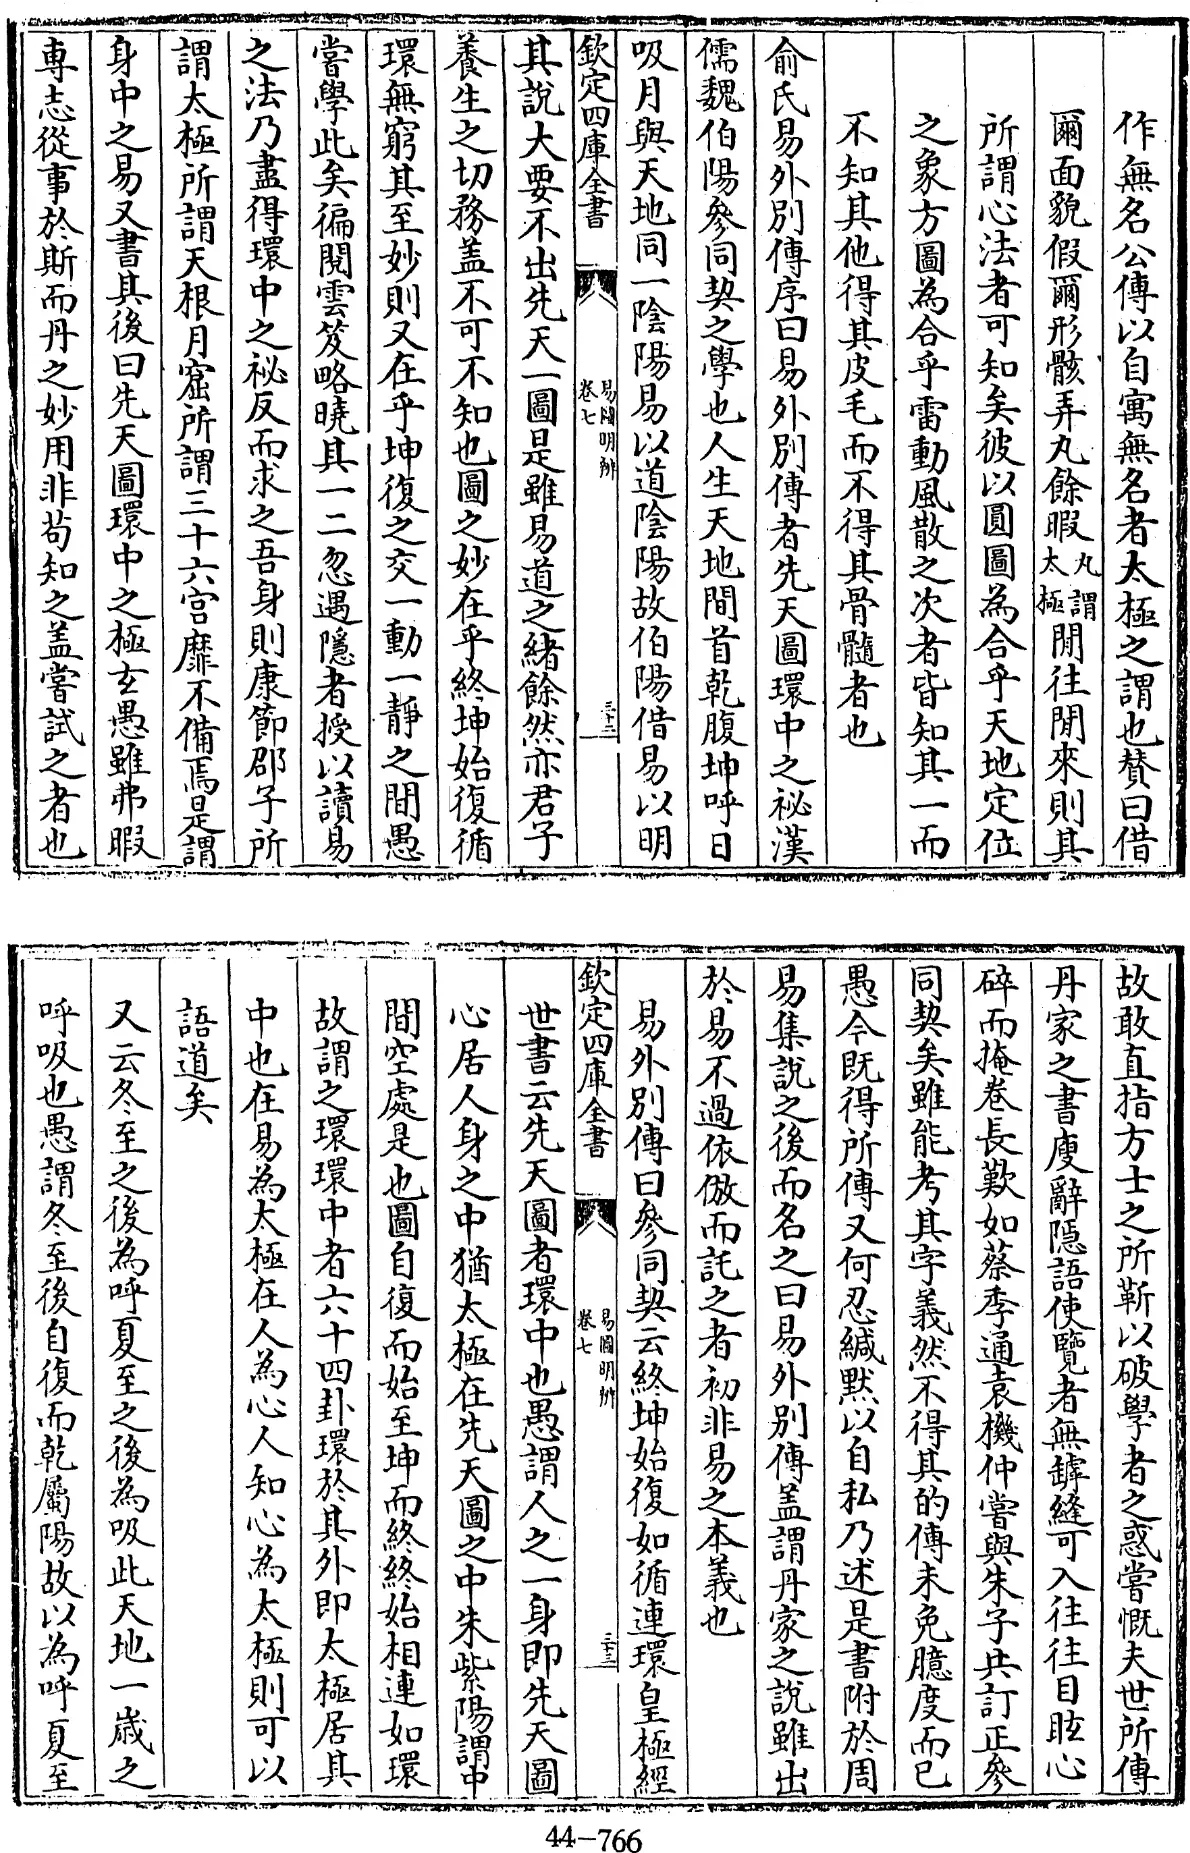 作無名公傳以自寓無名者太極之謂也贊曰借
爾面貌假爾形骸弄丸餘暇丸謂太極閒往閒來則其
所謂心法者可知矣彼以圓圖為合乎天地定位
之象方圖為合乎雷動風散之次者皆知其一而
不知其他得其皮毛而不得其骨髓者也
俞氏易外別傳序曰易外別傳者先天圖環中之祕漢
儒魏伯陽參同契之學也人生天地間首乾腹坤呼日
吸月與天地同一陰陽易以道陰陽故伯陽借易以明
欽定四庫全書
易圖明辨
卷七
三十二
其說大要不出先天一圖是雖易道之緒餘然亦君子
養生之切務盖不可不知也圖之妙在乎終坤始復循
環無窮其至妙則又在乎坤復之交一動一靜之間愚
嘗學此矣徧閱雲笈略曉其一二忽遇隱者授以讀易
之法乃盡得環中之祕反而求之吾身則康節邵子所
謂太極所謂天根月窟所謂三十六宮靡不備焉是謂
身中之易又書其後曰先天圖環中之極玄愚雖弗暇
専志從事於斯而丹之妙用非苟知之盖嘗試之者也
故敢直指方士之所靳以破學者之惑嘗慨夫世所傳
丹家之書廋辭隱語使覽者無罅縫可入往往目眩心
碎而掩卷長歎如蔡季通袁機仲嘗與朱子共訂正參
同契矣雖能考其字義然不得其的傳未免臆度而已
愚今既得所傳又何忍緘默以自私乃述是書附於周
易集說之後而名之曰易外別傳盖謂丹家之說雖出
於易不過依倣而託之者初非易之本義也
易外別傳曰參同契云終坤始復如循連環皇極經
欽定四庫全書
易圖明辨
卷七
三十三
世書云先天圖者環中也愚謂人之一身即先天圖
心居人身之中猶太極在先天圖之中朱紫陽謂中
間空處是也圖自復而始至坤而終終始相連如環
故謂之環環中者六十四卦環於其外即太極居其
中也在易為太極在人為心人知心為太極則可以
語道矣
又云冬至之後為呼夏至之後為吸此天地一歲之
呼吸也愚謂冬至後自復而乾屬陽故以為呼夏至
44-766